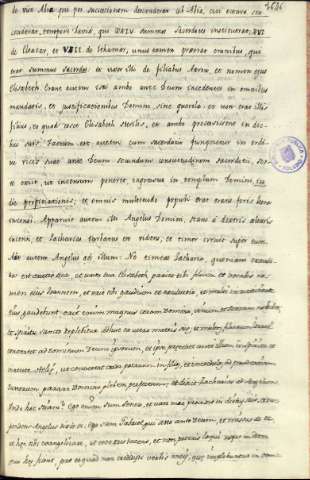 de vice Abia qui per successionem descenderat ab Abia, cui
tempore David, qui XXIV summos sacerdotes instituerat, XVI
de Eleazar, et VIII de Ithamar, unus tamen praerat omnibus qui
erat summus sacerdos. et uxor illi de filiabus Aaron, et nomen ejus
Elisabeth. Erant autem justi ambo ante Deum incedentes in omnibus
mandatis, et justificationibus Domini, sine querela. et non erat illis
filius, eo quod esset Elisabeth sterilis, et ambo processissent in die-
bus suis. Factum est autem cum sacerdotio fungeretur in ordi-
ne vicis suae ante Deum secundum consuetudinem sacerdotii, sor-
te exiit, ut incensum poneret, ingressus in templum Domini,
die propitiationis; et omnis multitudo populi erat orans foris hora
incensi. Apparuit autem illi Angelus Domini, stans à dextris altaris
incensi, et Zacharias turbatus est videns, et timor irruit super eum.
Ait autem Angelus ad illum: Ne timeas Zacharia, quoniam exaudi-
ta est oratio tua, et uxor tua Elisabeth pariet tibi filium, et vocabis no-
men ejus Joannem, et erit tibi gaudium et exultatio, et multi in nativitate
ejus gaudebunt. erit enim magnus coram Domino, et vinum et siceram non bibet,
et spiritu sancto replebitur adhuc ex utero matris suae, et multos filiorum Israel
convertet ad Dominum Deum ipsorum, et ipse praecedet ante illum in spiritu et
virtute Eliae, ut convertat corda patrum in filios, et incredulos ad prudentiam
justorum parare Domino plebem perfectam; et dixit Zacharias ad Angelum
Unde hoc sciam? Ego enim sum senex, et uxor mea processit in diebus suis, et res-
pondens Angelus dixit ei. Ego sum Gabriel qui sto ante Deum, et missus ad te,
et haec tibi evangelizare, et ecce eris tacens, et non poteris loqui usque in diem
quo haec fiant, pro eo quod non credidisti verbis meis, quae implebuntur in tem-